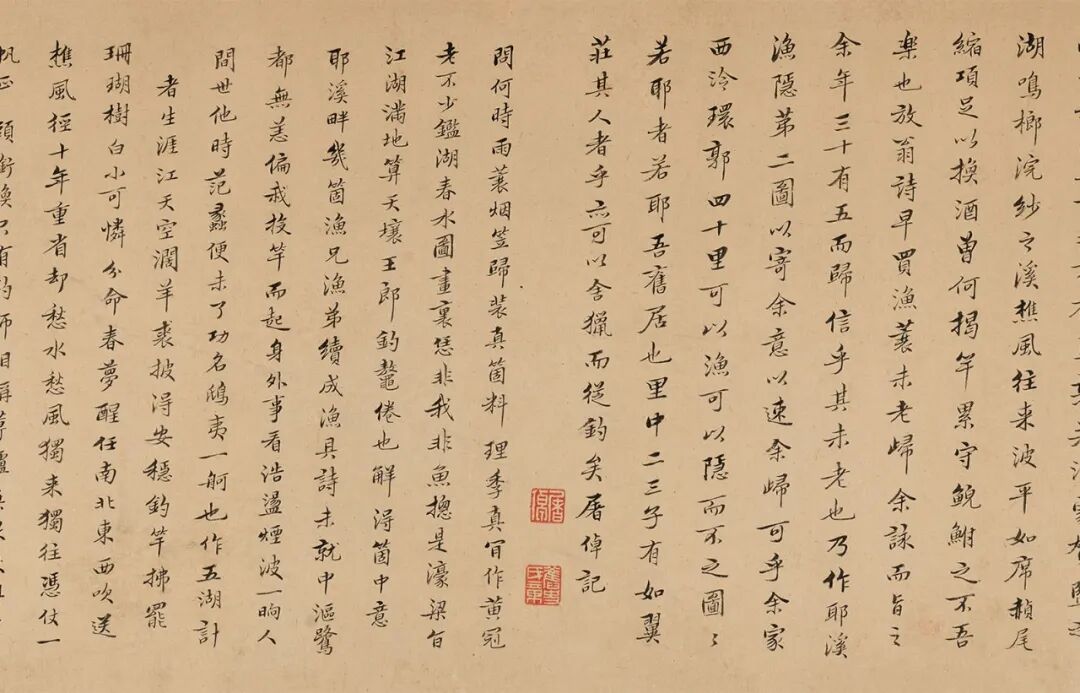 湖鳴榔浣紗之溪樵風往来波平如席赬尾
縮項足以換酒曾何揭竿累守鯢鮒之不吾
楽也放翁詩早買漁蓑未老歸余詠而旨之
余年三十有五而歸信乎其未老也乃作耶溪
漁隱苐二圖以寄余意以速余歸可乎余家
西泠環郭四十里可以漁可以隱而不之圖〻
若耶者若耶吾舊居也里中二三子有如翼
莊其人者乎亦可以舍獵而從釣矣屠倬記
屠倬
問何時雨蓑烟笠歸装真箇料理季真肎作黄冠
老不少鑑湖春水圖畫裏恁非我非魚摠是濠梁旨
江湖滿地算天壤王郎釣鼇倦也解得箇中意
耶溪畔幾箇漁兄漁弟續成漁具詩未就中漚鷺
都無恙偏我投竿而起身外事看浩盪煙波一晌人
間世他時范蠡便未了功名鴟夷一舸也作五湖計
者生涯江天空濶羊裘披得安穩釣竿拂罷
珊瑚樹白小可憐分命春夢醒任南北東西吹送
樵風徑十年重省却愁水愁風獨来獨往憑仗一
帆正頭銜換只有釣師相稱